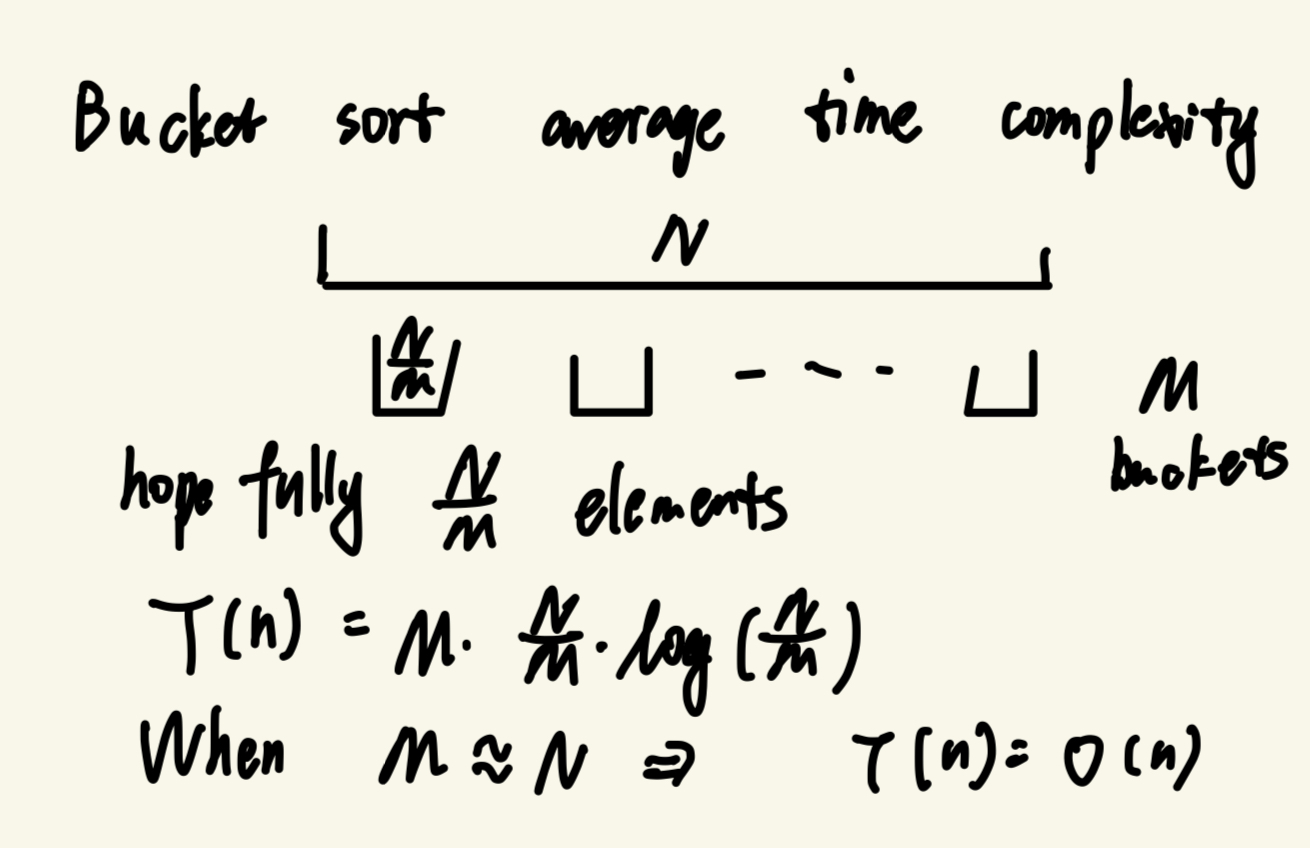 Bucket sort average time complexity
N
N/m - - - M
buckets
hopefully N/m elements
T(n) = M · N/m · log (N/m)
When M ≈ N ⇒ T(n) = O(n)